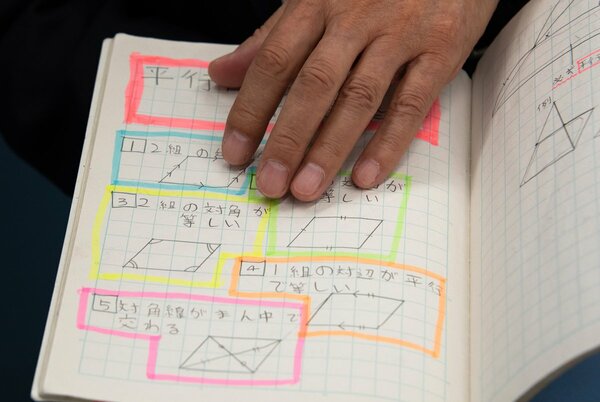 平行
1 2組の
しい
3 2組の対角が
等しい
4 1組の対辺が平行
で等しい
5 対角線が
交わる
(例)